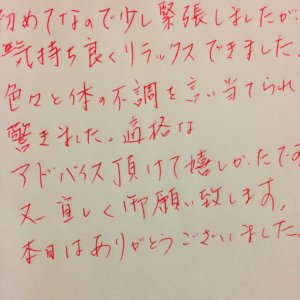 初めてなので少し緊張しましたが
気持ち良くリラックスできました。
色々と体の不調を言い当てられ
驚きました。適格な
アドバイス頂けて嬉しかったです
又宜しく御願い致します。
本日はありがとうございました。